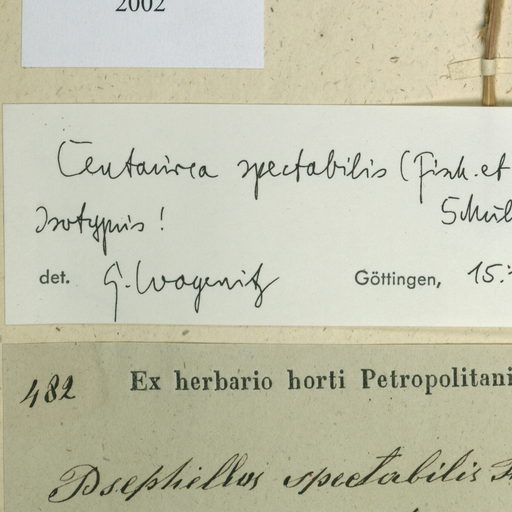 2002
Centaurea spectabilis (Fisch. et
Schul
Isotypus !
det. G. Wagenitz Göttingen, 15.
482 Ex herbario horti Petropolitani
Psephellus spectabilis